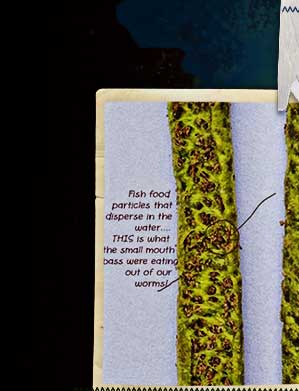 Fish food
particles that
disperse in the
water....
THIS is what
the small mouth
bass were eating
out of our
worms!